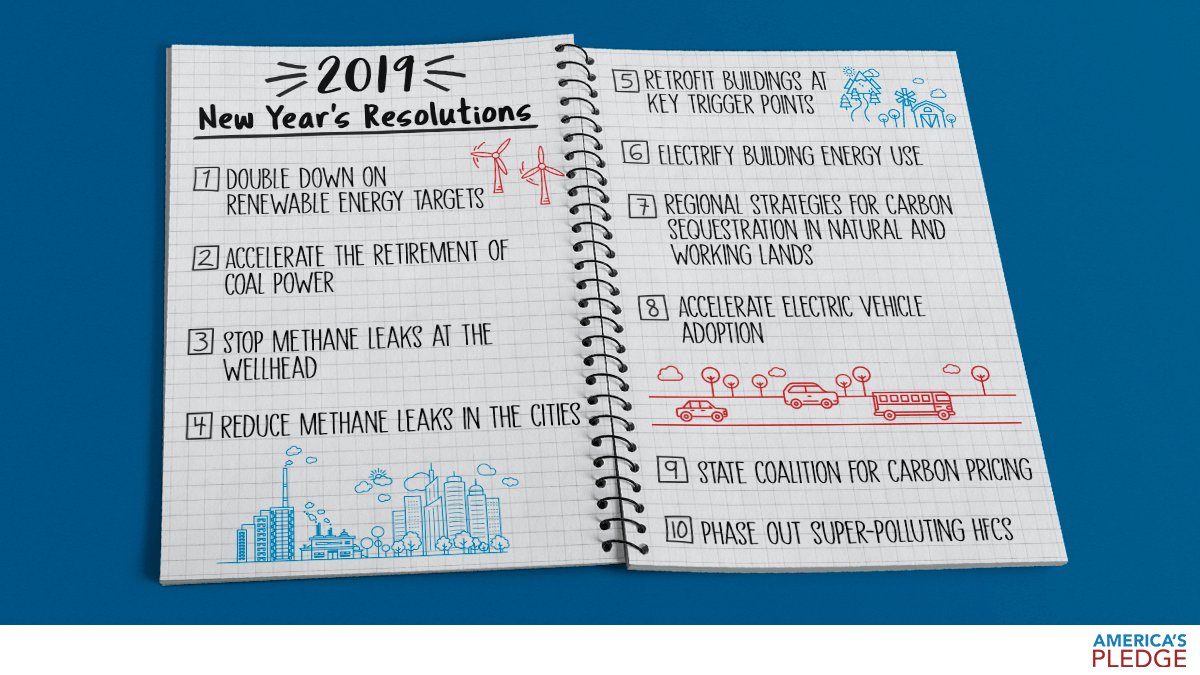 2019
New Year's Resolutions
1 DOUBLE DOWN ON
RENEWABLE ENERGY TARGETS
2 ACCELERATE THE RETIREMENT OF
COAL POWER
3 STOP METHANE LEAKS AT THE
WELLHEAD
4 REDUCE METHANE LEAKS IN THE CITIES
5 RETROFIT BUILDINGS AT
KEY TRIGGER POINTS
6 ELECTRIFY BUILDING ENERGY USE
7 REGIONAL STRATEGIES FOR CARBON
SEQUESTRATION IN NATURAL AND
WORKING LANDS
8 ACCELERATE ELECTRIC VEHICLE
ADOPTION
9 STATE COALITION FOR CARBON PRICING
10 PHASE OUT SUPER-POLLUTING HFCS
AMERICA'S
PLEDGE